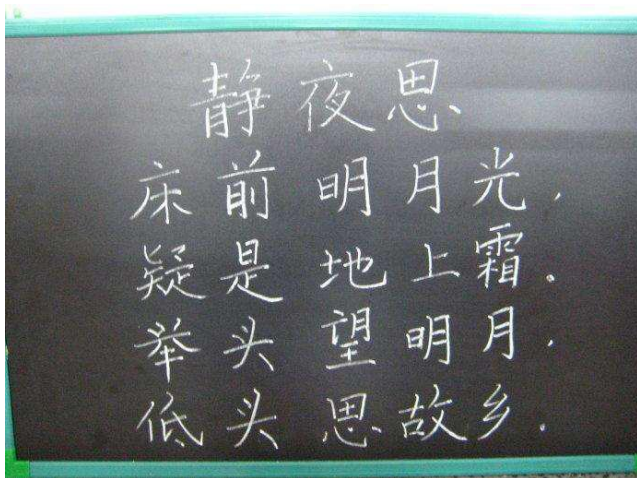 静夜思
床前明月光，
疑是地上霜。
举头望明月，
低头思故乡．